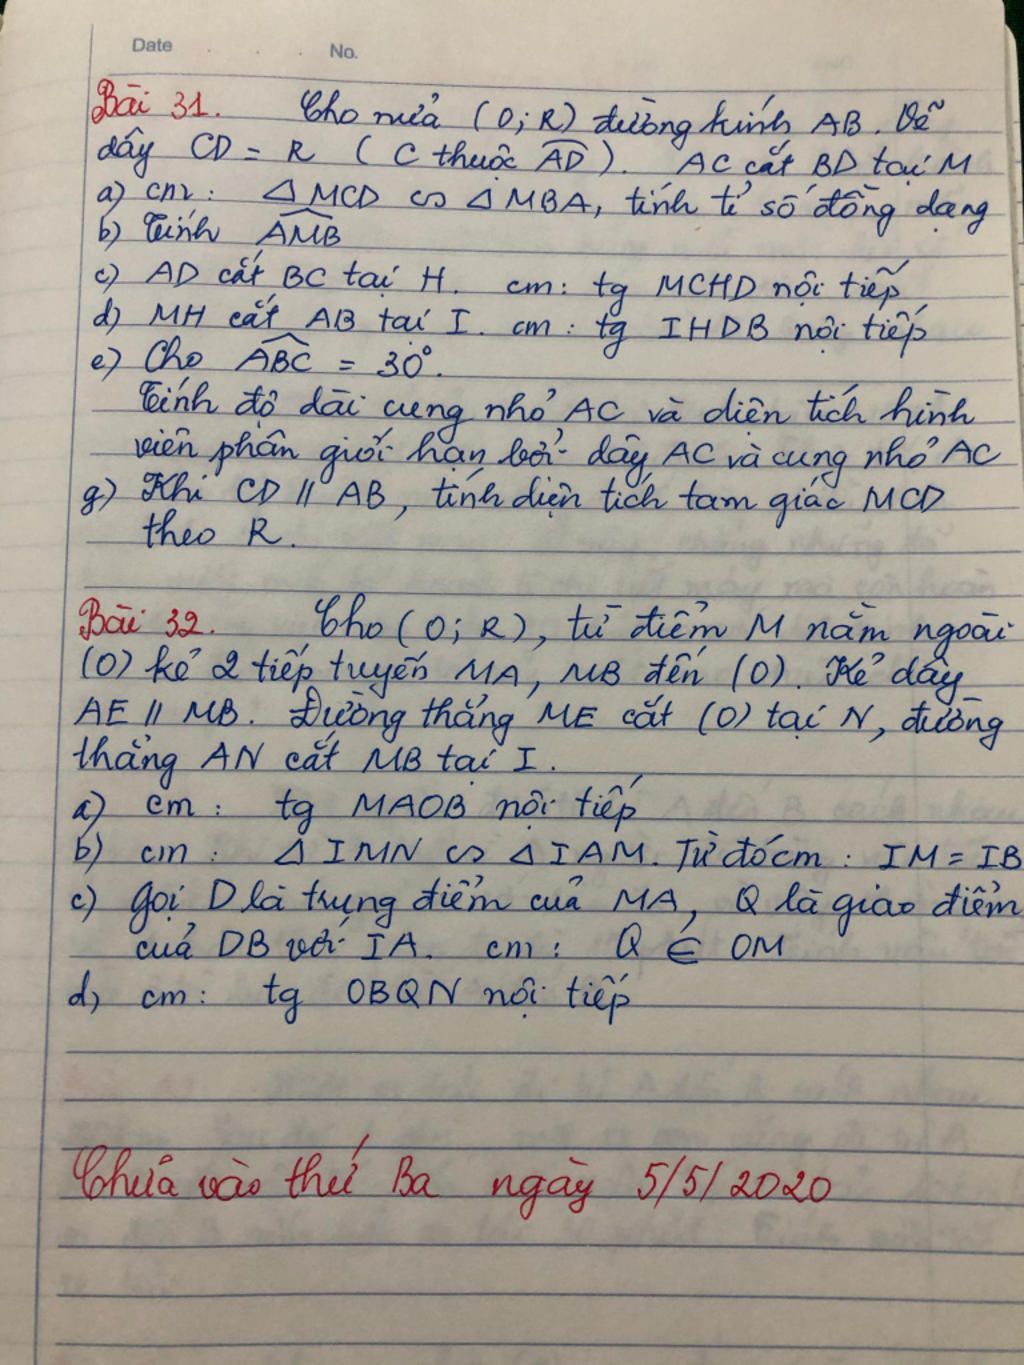 Date . . . No.
Bài 31. Cho nửa (O; R) đường kính AB. Vẽ
dây CD = R (C thuộc AD). AC cắt BD tại M
a) cm: △ MCD ∽ △ MBA, tính tỉ số đồng dạng
b) Tính AMB
c) AD cắt BC tại H. cm: tg MCHD nội tiếp
d) MH cắt AB tại I. cm: tg IHDB nội tiếp
e) Cho ABC = 30°.
Tính độ dài cung nhỏ AC và diện tích hình
viên phân giới hạn bởi dây AC và cung nhỏ AC
g) Khi CD // AB, tính diện tích tam giác MCD
theo R.
Bài 32. Cho (O; R), từ điểm M nằm ngoài
(O) kẻ 2 tiếp tuyến MA, MB đến (O). Kẻ dây
AE // MB. Đường thẳng ME cắt (O) tại N, đường
thẳng AN cắt MB tại I.
a) cm: tg MAOB nội tiếp
b) cm: △ IMN ∽ △ IAM. Từ đó cm: IM = IB
c) Gọi D là trung điểm của MA, Q là giao điểm
của DB với IA. cm: Q ∈ OM
d) cm: tg OBQN nội tiếp
Chữa vào thứ Ba ngày 5/5/2020